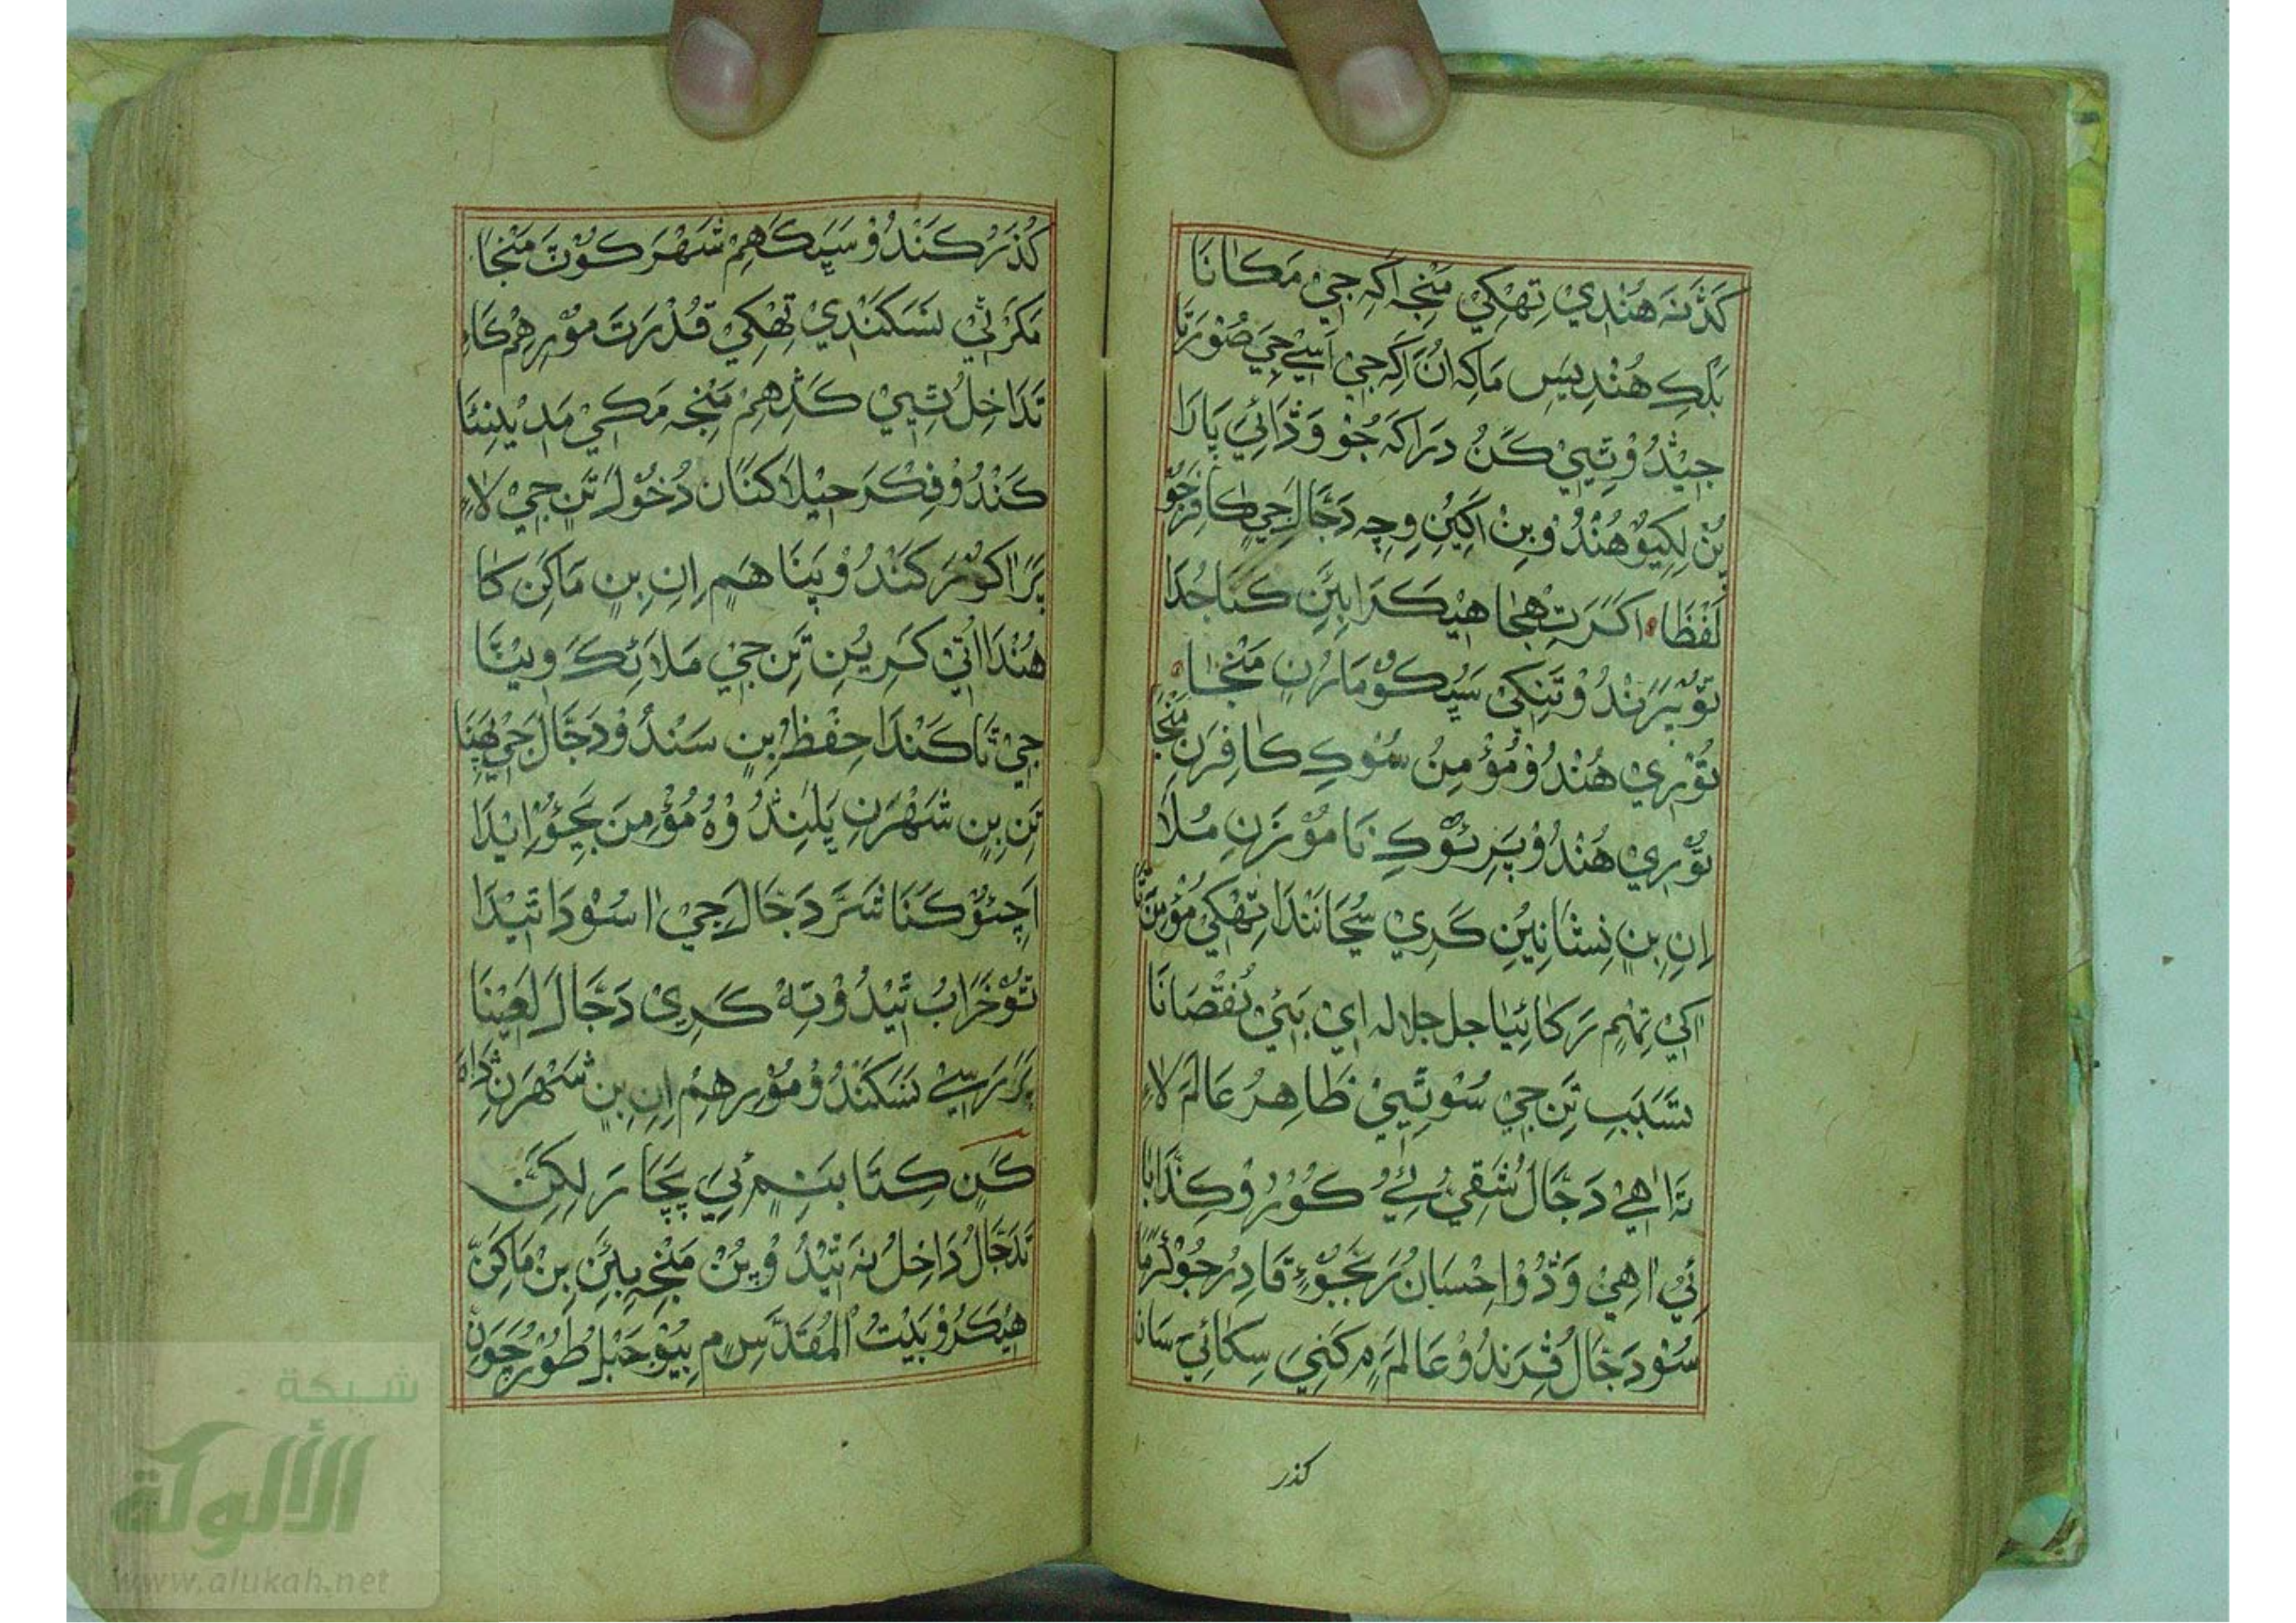 كَڎَنَہ هُنْدِيْ تِهْکِيْ مَنْجِہ اَکِہ جِيْ مَکَانَا
بَلْڪِ هُنْدِيسِ مَاکِہ اُنَ اَکِہ جِيْ اَسِيْ جِيَ صُوْرَتَا
جِيْڎُ وْ تِيِيْ ڪَنُ دِرَاکَہ جُوْ وَڎَائِيَ پَارَا
بِنْ لِکِيُوْ هُنْدُ وْ بِنْ اَکِيْنِ وِچِہ دَجَّالَ جِيْ کَافِرَ جُوْ
لَفْظَا اَکَرَ تِهِجَا هِيْکَڙَا بِيَنِ کَنَا جُدَا
تُوْ پَرَنْدُ وْ تَنِکِيْ سَڀِڪُوْ مَاڙُنِ مَنْجَا
تُوْرِيْ هُنْدُ وْ مُؤْمِنُ سُوْڪِ کَافِرَنِ مَنْجَا
تُوْرِيْ هُنْدُ وْ پَڙِئُوْڪِ نَامُوْزَنِ مُلَا
اِنِ بِنِ نِشَانِيُنِ کَرِيْ سُڃَانَنْدَا تِهْکِيْ مُؤْمِنَ
اکِيْ تِهِمِ رَکَائِيَا جل جلاله اي بَئِيْ نُقْصَانَا
سَبَبِ تَنِ جِيْ سُوْ تِيِيْ ظَاهِرُ عَالَمَ لَاءِ
تَہ اٰهِيْ دَجَّالُ شَقِيْ ڪُوْرُ وْ کَذَّابَا
ئِيْ اٰهِيْ وَڎُ وْ اِحْسَانُ رَبَّجُوْءِ قَادِرُ جُوْ ڪَرَمَا
سُوْ دَجَّالُ ڦِرَنْدُ وْ عَالَمَ ۾ کَنِيَ سِکَائِيْ سَانَ
کذر
کُذَرْ کَنْدُ وْ سَڀِڪَهِمْ شَهْرَ ڪُوْٽَ مَنْجَا
مَکَرَ ٿِيْ نَسَکَنْدِيْ تِهْکِيْ قُدْرَتَ مُوْرِ هِمْ کَاءِ
تَدَاخِلُ تِيِيْ ڪَڎِهِمْ مَنْجِہ مَکِيْ مَدِيْنِئَا
ڪَنْدُ وْ فِڪْرَ حِيْلَا کَنَانَ دُخُوْلَ تَنِ جِيْ لَاءِ
پَرَ اکُوْرَ کَنْدُ وْ پَنَا هَمِ اِنِ بِنِ مَاکَنِ کَا
هُنْدَا اُتِيْ کَرِيْنِ تَنِ جِيْ مَلَائِڪَ وِيْٺَا
جِيْ تَا کَنْدَا حِفْظُ بِنِ سَنْدُ وْ دَجَّالَ جِيْ
تَنِ بِنِ شَهْرَنِ پَلِنْدُ وْ هُ مُؤْمِنَ بَچِئُوْ اِيْدَا
اَچِئُوْ کَنَا شَرَّ دَجَّالَ جِيْ اٰسُوْدَا تِيْدَا
تُوْ خَرَابُ تِيْدُ وْ تِهْ کَرِيْ دَجَّالَ لَعِيْنَا
پَرَ رَسِيْ نَسَکَنْدُ وْ مُوْرِ هِمْ اِنِ بِنِ شَهْرَنِ ڎَاهَ
کَنِ ڪِتَابَنِ ۾ ٻِيَ پَچَارَ لِکِيَنِ
تَدَجَّالُ دَاخِلُ نَہ تِيْدُ وْ بِنْ مَنْجِہ بِيَنِ بِنْ مَاکَنِ
هِيْکَڙُ وْ بَيْتُ الْمُقَدَّسِ ۾ ٻِيُوْ جَبَلِ طُوْرِ جَوَنِ
شبكة
الألوكة
www.alukah.net